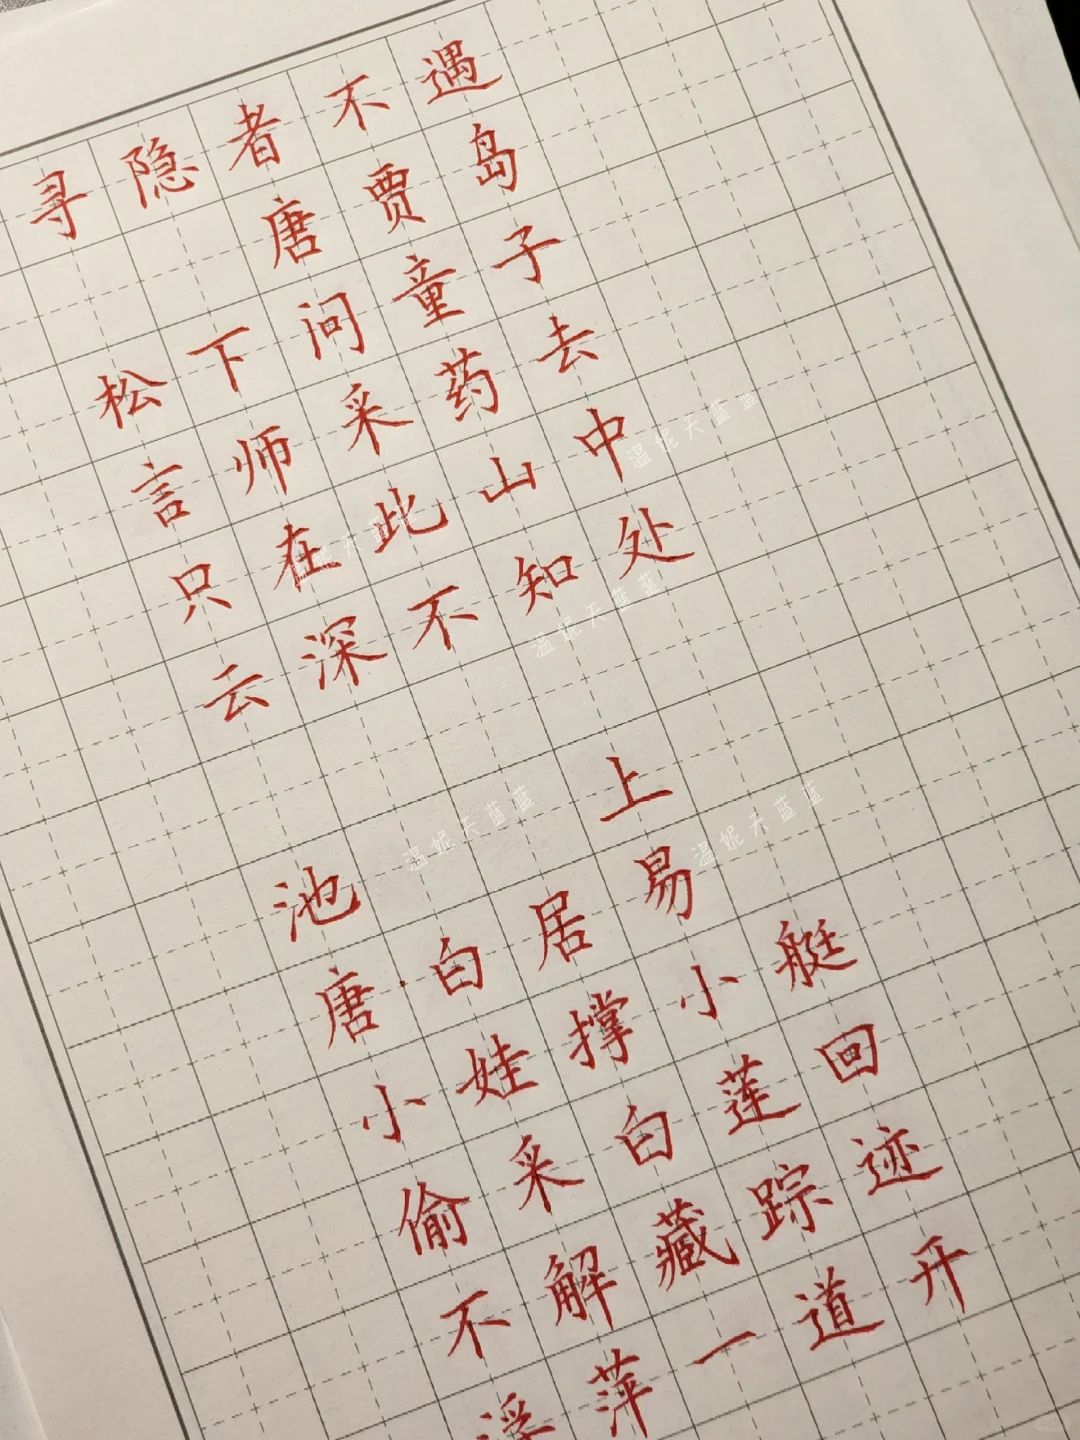 寻隐者不遇
唐 贾岛
松下问童子
言师采药去
只在此山中
云深不知处
池上
唐·白居易
小娃撑小艇
偷采白莲回
不解藏踪迹
浮萍一道开
温妮天蓝蓝
温妮天蓝蓝
温妮天蓝蓝
温妮天蓝蓝
妮天蓝